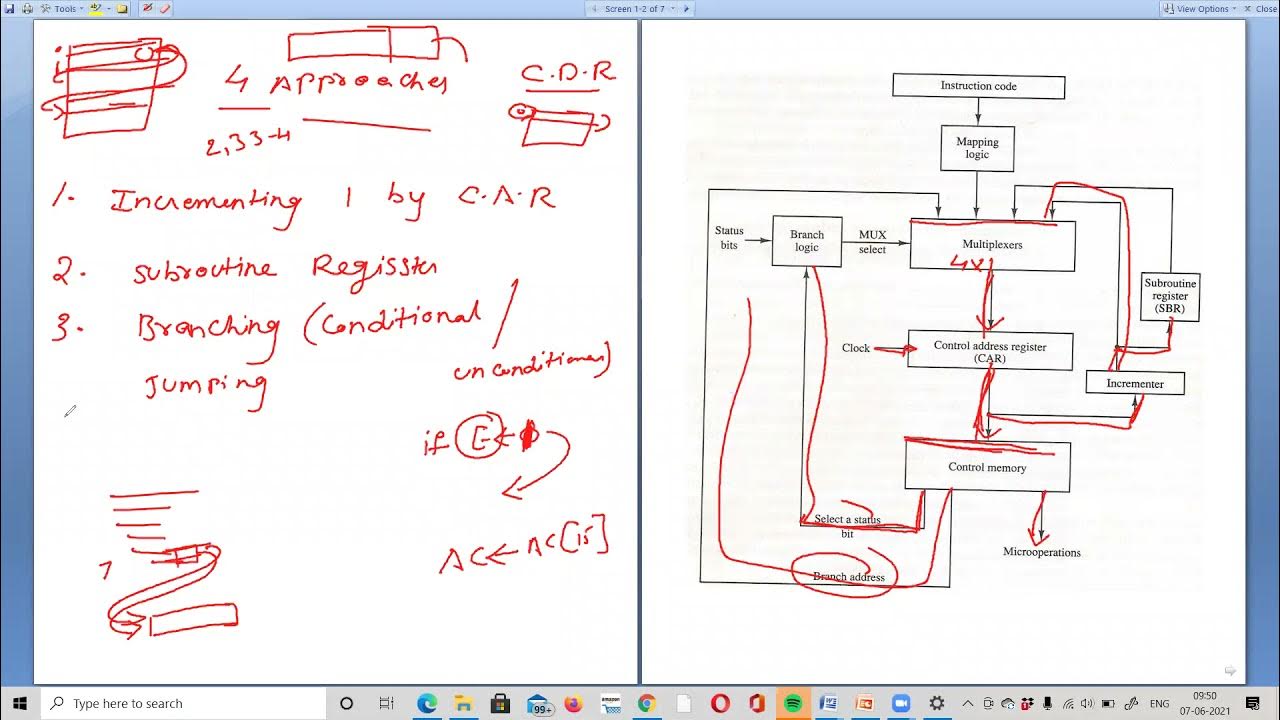 Tools
Screen 1-2 of 7
View Options
Close
4 Approaches
C.D.R
2,3 3-4
1. Incrementing 1 by C.A.R
2. Subroutine Regisster
3. Branching (Conditional /
unconditional)
Jumping
if E ←
AC ← AC[15]
Instruction code
Mapping
logic
Status
bits
Branch
logic
MUX
select
Multiplexers
4x1
Subroutine
register
(SBR)
Clock
Control address register
(CAR)
Incrementer
Control memory
Select a status
bit
Microoperations
Branch address
Type here to search
99+
amazon
ENG
09:50
07-06-2021